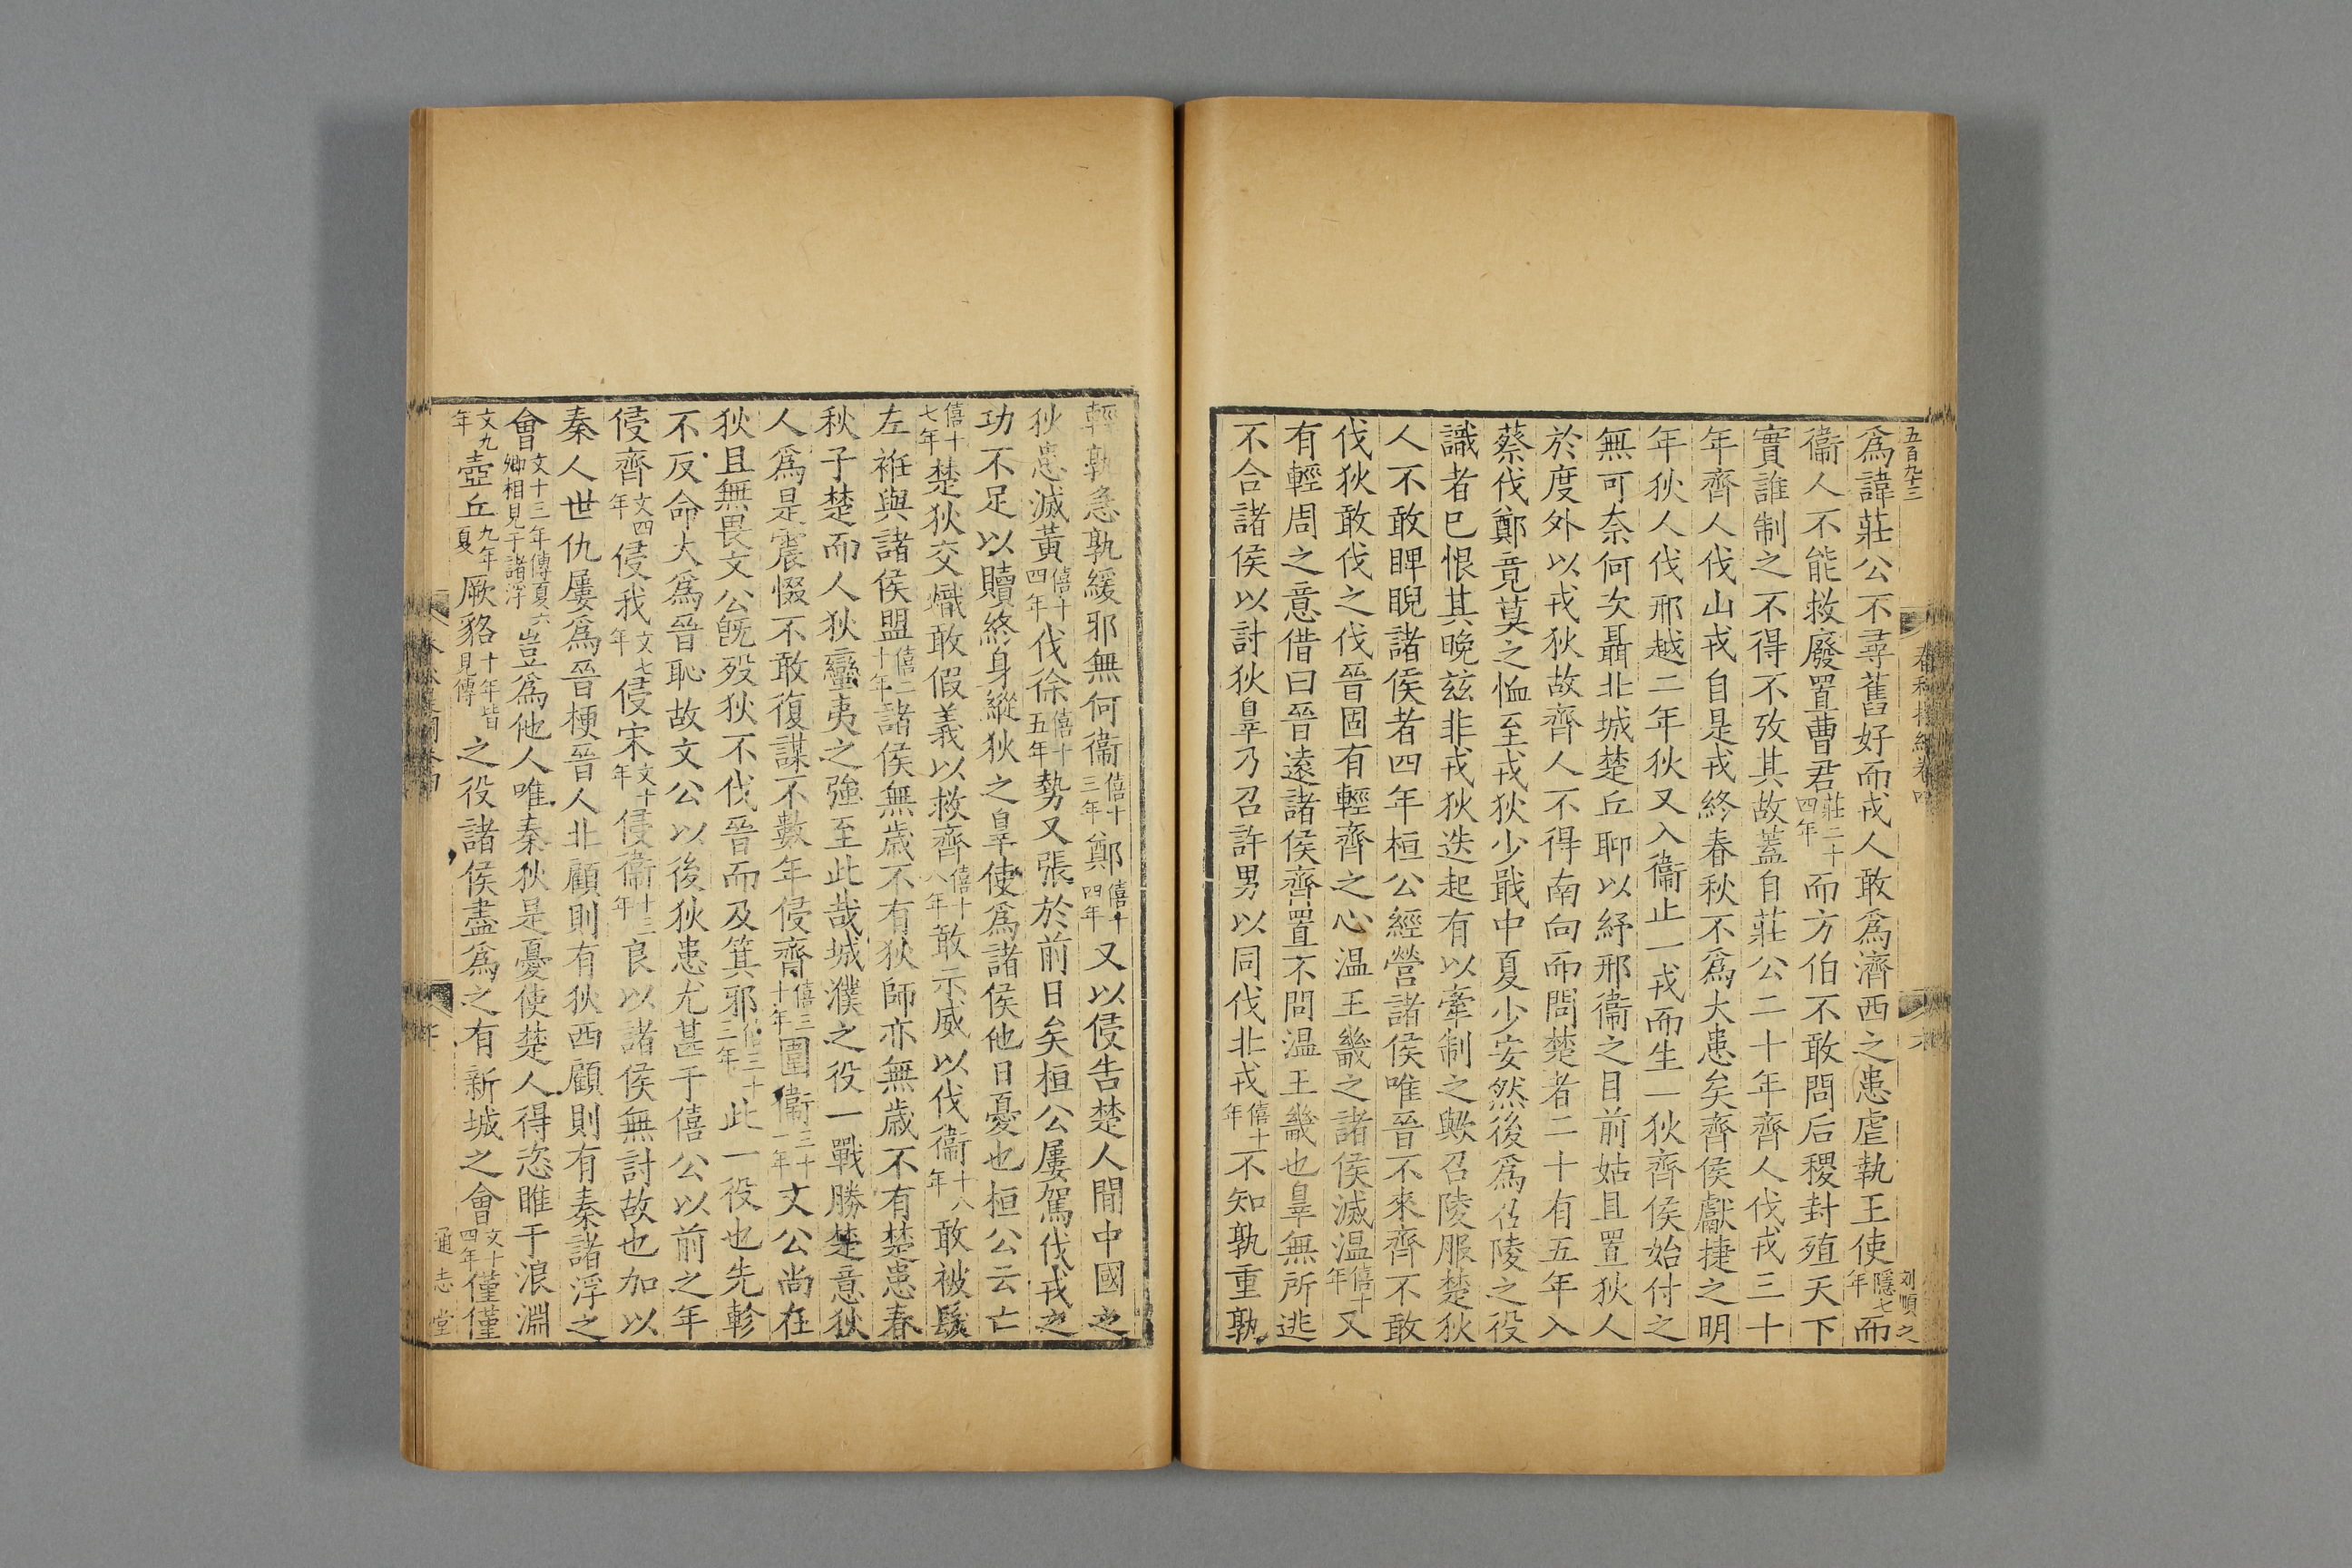 五百九十三
爲諱莊公不尋舊好而戎人敢爲濟西之患虐執王使隱七年而
衞人不能救廢置曹君莊二十四年而方伯不敢問后稷封殖天下
實誰制之不得不攷其故蓋自莊公二十年齊人伐戎三十
年齊人伐山戎自是戎終春秋不爲大患矣齊侯獻捷之明
年狄人伐邢越二年狄又入衞止一戎而生一狄齊侯始付之
無可奈何次聶北城楚丘聊以紓邢衞之目前姑且置狄人
於度外以戎狄故齊人不得南向而問楚者二十有五年入
蔡伐鄭竟莫之恤至戎狄少戢中夏少安然後爲召陵之役
識者已恨其晚兹非戎狄迭起有以牽制之歟召陵服楚狄
人不敢睥睨諸侯者四年桓公經營諸侯唯晉不來齊不敢
伐狄敢伐之伐晉固有輕齊之心温王畿之諸侯滅温僖十年又
有輕周之意借曰晉遠諸侯齊置不問温王畿也辠無所逃
不合諸侯以討狄辠乃召許男以同伐北戎僖十年不知孰重孰
劉順之
輕孰急孰緩邪無何衞僖十三年鄭僖十四年又以侵告楚人閒中國之
狄患滅黃僖十四年伐徐僖十五年勢又張於前日矣桓公屢駕伐戎之
功不足以贖終身縱狄之辠使爲諸侯他日憂也桓公云亡
僖十七年楚狄交熾敢假義以救齊僖十八年敢示威以伐衞十八年敢被髮
左袵與諸侯盟僖二十年諸侯無歲不有狄師亦無歲不有楚患春
秋子楚而人狄蠻夷之強至此哉城濮之役一戰勝楚意狄
人爲是震惙不敢復謀不數年侵齊僖三十年圍衞三十一年文公尚在
狄且無畏文公旣歿狄不伐晉而及箕邪僖三十三年此一役也先軫
不反命大爲晉恥故文公以後狄患尤甚于僖公以前之年
侵齊文四年侵我文七年侵宋文十年侵衞十三年良以諸侯無討故也加以
秦人世仇屢爲晉梗晉人北顧則有狄西顧則有秦諸浮之
會文十三年傳夏六卿相見于諸浮豈爲他人唯秦狄是憂使楚人得恣睢于浪淵
文九年壺丘九年夏厥貉十年皆見傳之役諸侯盡爲之有新城之會文十四年僅僅
通志堂